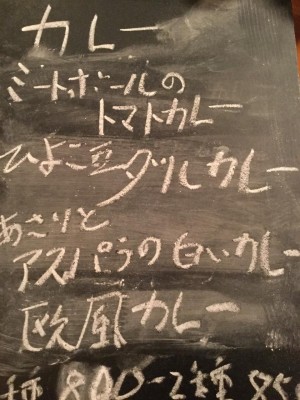 カレー
ミートボールの
トマトカレー
ひよこ豆ダルカレー
あさりと
アスパラの白いカレー
欧風カレー
種 800- 2種 850